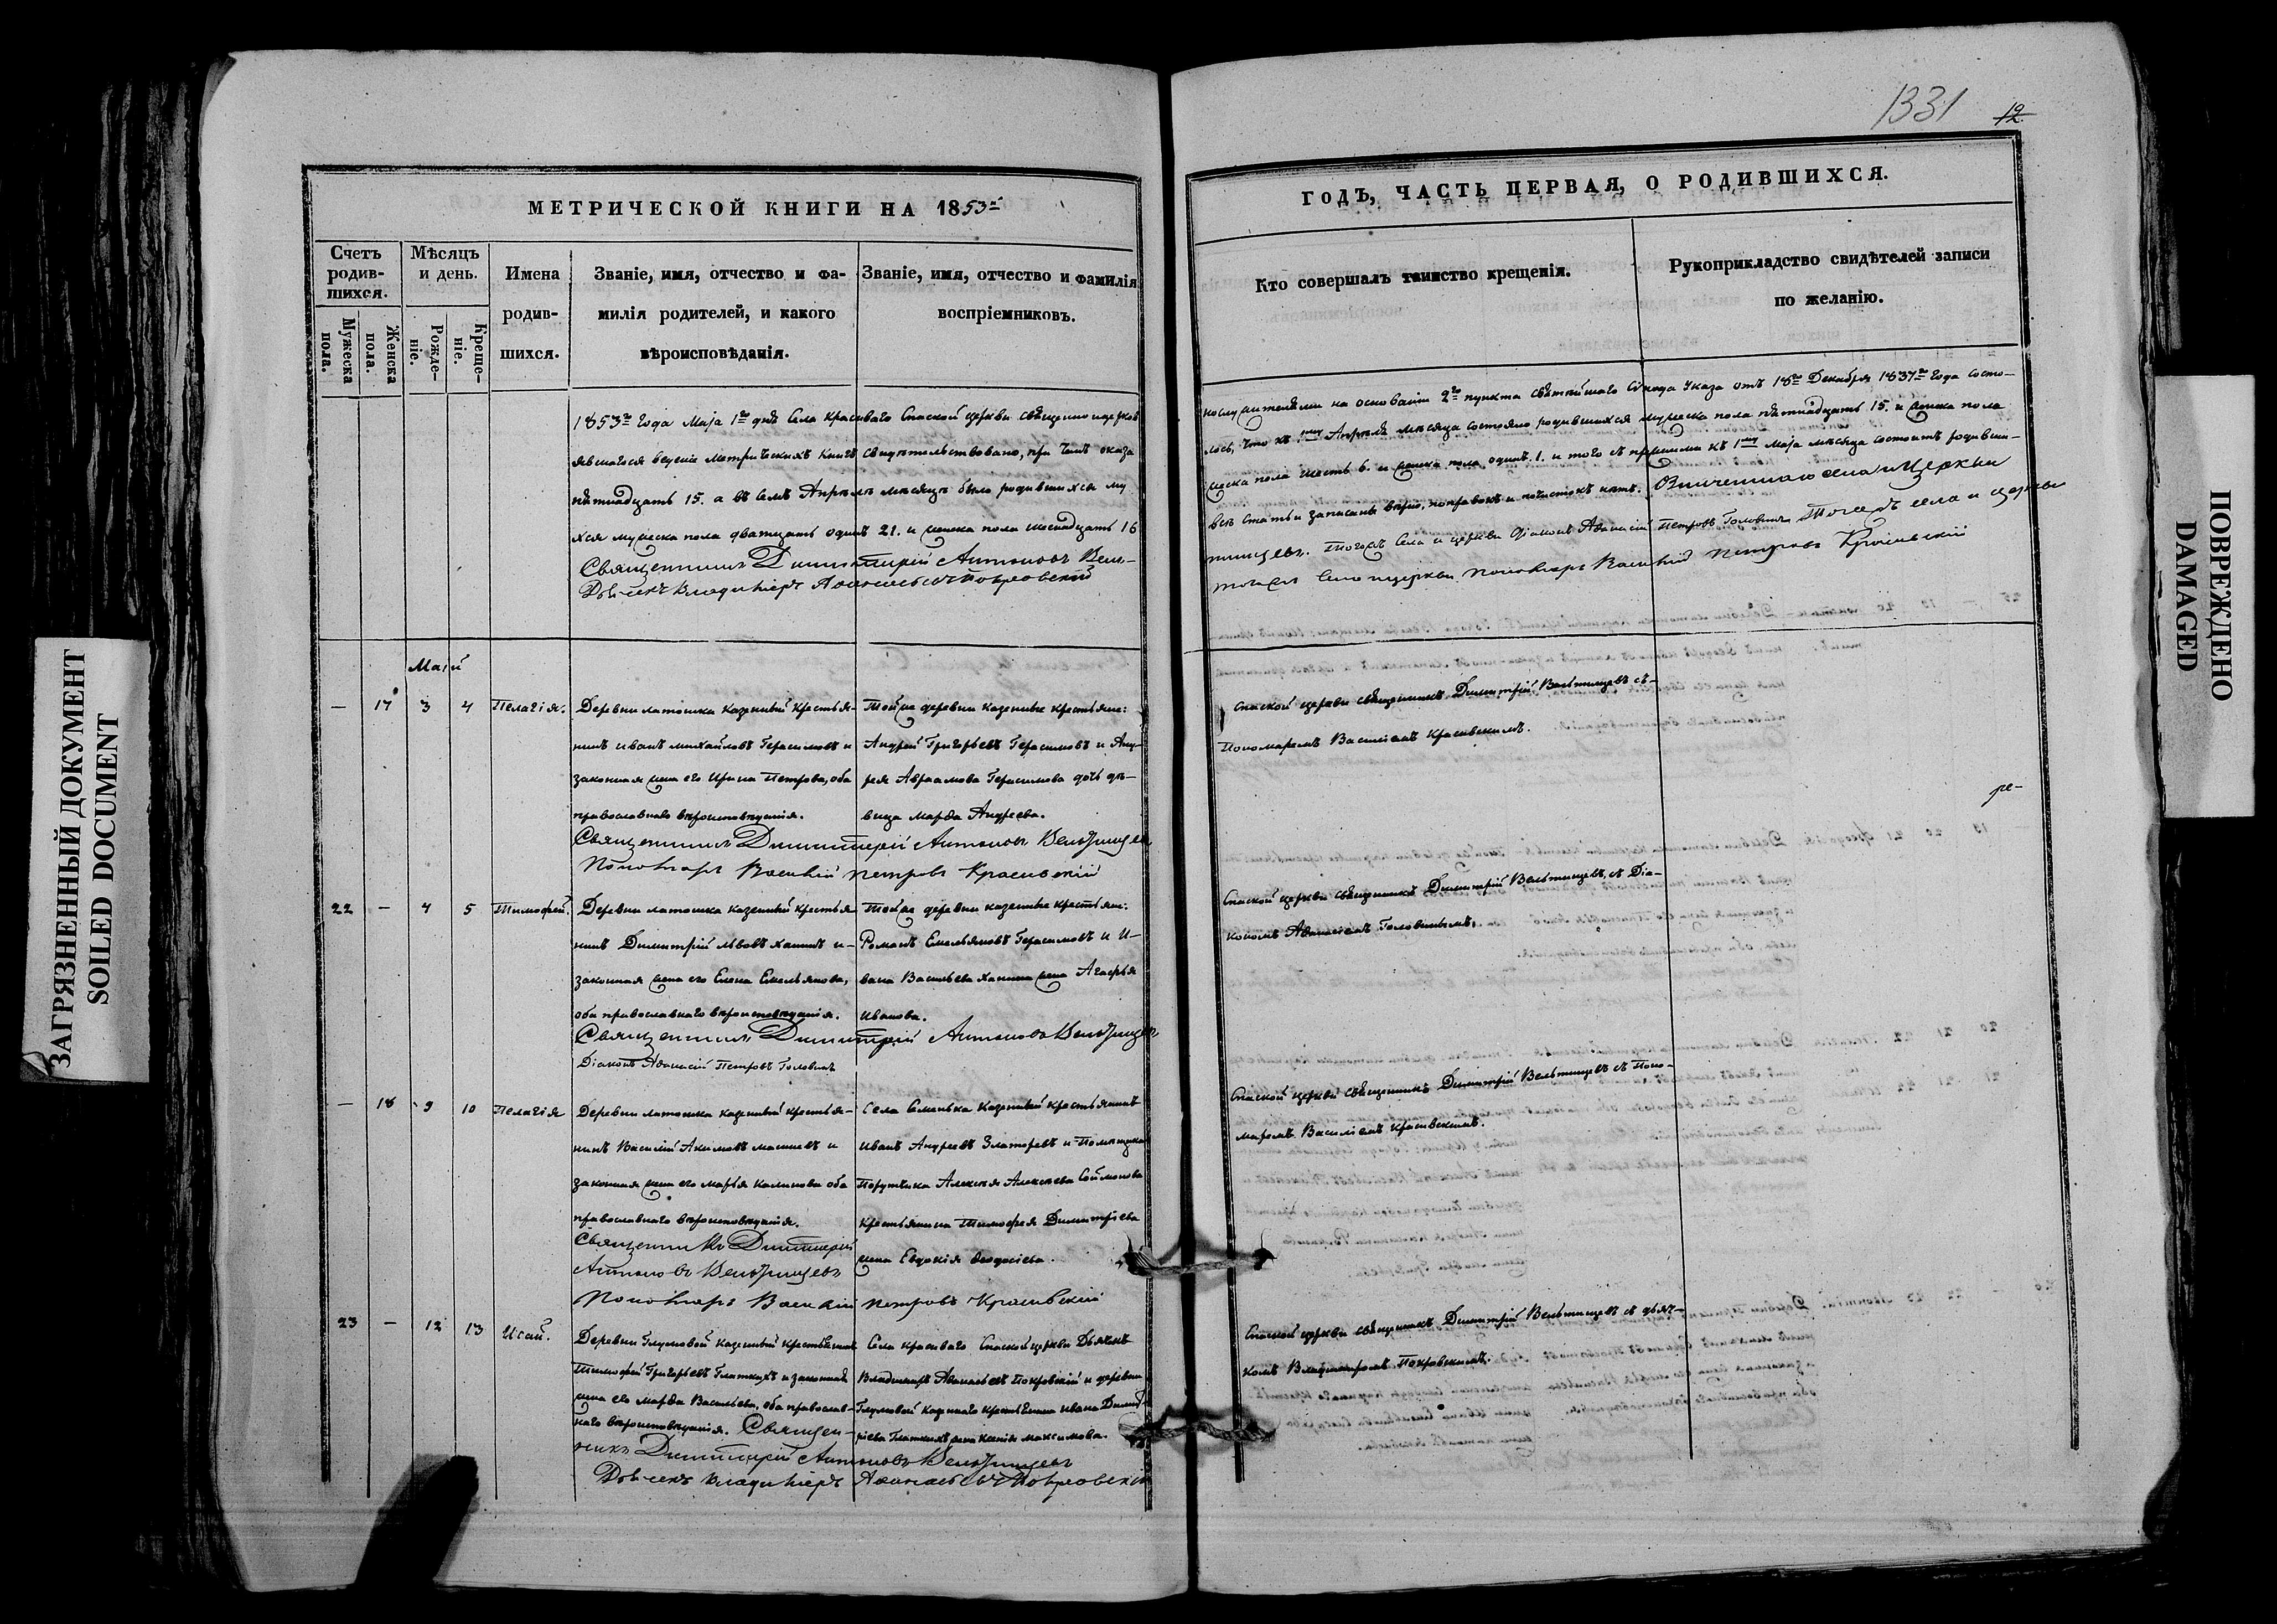 1331 12
МЕТРИЧЕСКОЙ КНИГИ НА 1853й
ГОДЪ, ЧАСТЬ ПЕРВАЯ, О РОДИВШИХСЯ.
Счетъ родив-шихся.
Мужеска пола.
Женска пола.
Мѣсяцъ и день.
Рожде-ніе.
Креще-ніе.
Имена родив-шихся.
Званіе, имя, отчество и фа-
милія родителей, и какого
вѣроисповѣданія.
Званіе, имя, отчество и фамилія
воспріемниковъ.
Кто совершалъ таинство крещенія.
Рукоприкладство свидѣтелей записи
по желанію.
1853го года Маја 1го дня Села Красиваго Спаской церкви священно и церков
нослужителями на основаніи 2го пункта святѣйшаго Сѵнода Указа отъ 18го Декабря 1837го года состо-
явшагося веденіе метрическихъ книгъ свидѣтельствовано, при чемъ оказа
лось, что къ 1му Апрѣля мѣсяца состояло родившихся мужеска пола пятнадцать 15. и женска пола
пятнадцать 15. а въ семъ Апрѣлѣ мѣсяцѣ было родившихся му
жеска пола шесть 6. и женска пола одинъ. 1. и того съ прежними къ 1му Маја мѣсяца состоитъ родивши-
хся мужеска пола дватцать одинъ 21. и женска пола шеснадцать 16
всѣ статьи записаны вѣрно, поправокъ и почистокъ нѣтъ. Означеннаго села и Церкви
Священникъ Димитрій Антоновъ Вель-
тищевъ. Тогожъ Села и церкви Діаконъ Аѳанасій Петровъ Головинъ Тогожъ села и церкви
Дьячекъ Владимиръ Аѳанасьевъ Покровскій
тогожъ села и церкви пономарь Василій Петровъ Красивскій
Маій
— 17 3 4 Пелагія.
Деревни латошка казенный крестья-
нинъ иванъ михайловъ Герасимовъ и
законная жена его Ирина Петрова, оба
православнаго вѣроисповѣданія.
Тойже деревни казенные крестьяне:
Андрей Григорьевъ Герасимовъ и Анд-
рея Авраамова Герасимова дочь дѣ-
вица марѳа Андреева.
Спаской церкви священникъ Димитрій Вельтищевъ съ
Пономаремъ Василіемъ Красивскимъ.
Священникъ Димитрій Антоновъ Вельтищевъ
Пономарь Василій петровъ Красивскій
22 — 4 5 Тимофей.
Деревни латошка казенный крестья
нинъ Димитрій львовъ ханинъ и
законная жена его Елена Емельянова,
оба православнаго вѣроисповѣданія.
Тойже деревни казенные крестьяне:
Романъ Емельяновъ Герасимовъ и И-
вана Васильева ханина жена Агафья
иванова.
Спаской церкви священникъ Димитрій Вельтищевъ, съ Діа-
кономъ Аѳанасіемъ Головинымъ.
Священникъ Димитрій Антоновъ Вельтищевъ
Діаконъ Аѳанасій Петровъ Головинъ
— 18 9 10 Пелагія
Деревни латошка казенный крестья-
нинъ Василій Акимовъ
законная жена его марья калинова оба
православнаго вѣроисповѣданія.
Села Семенька Казенный крестьянинъ
иванъ Андреевъ Златоревъ и Помѣщика
Порутчика Алексѣя Алексѣева Соймонова
Крестьянина Тимофея Димитріева
жена Евдокія Ѳеодосіева.
Спаской церкви священникъ Димитрій Вельтищевъ съ Поно-
маремъ Василіемъ Красивскимъ.
Священникъ Димитрій
Антоновъ Вельтищевъ
Пономарь Василій петровъ Красивскій
23 — 12 13 Исаи.
Деревни Глуховой Казенный Крестьянинъ
Тимофей Григорьевъ Глаткихъ и законная
жена его марѳа Васильева, оба православ-
наго вѣроисповѣданія. Священ-
Села красиваго Спаской церкви Дьячекъ
Владимиръ Аѳанасьевъ Покровскій и деревни
Глуховой Казеннаго Крестьянина ивана Димит-
ріева Глаткихъ жена Ксенія максимова.
Спаской церкви священникъ Димитрій Вельтищевъ съ дьяч-
комъ Владимиромъ Покровскимъ.
никъ Димитрій Антоновъ Вельтищевъ
Дьячекъ владимиръ Аѳанасьевъ Покровскій
ЗАГРЯЗНЕННЫЙ ДОКУМЕНТ
SOILED DOCUMENT
ПОВРЕЖДЕНО
DAMAGED